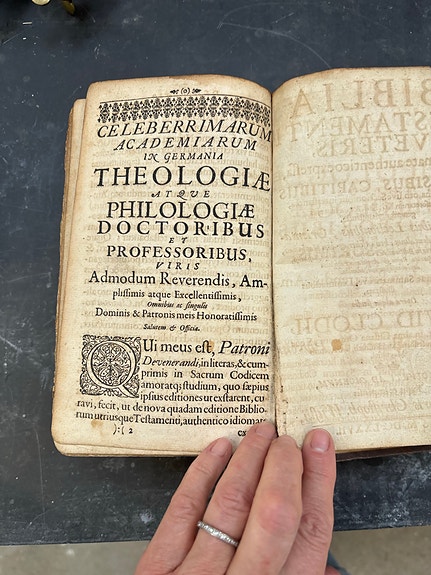 (o)
CELEBERRIMARUM
ACADEMIARUM
IN GERMANIA
THEOLOGIÆ
ATQUE
PHILOLOGIÆ
DOCTORIBUS
ET
PROFESSORIBUS,
VIRIS
Admodum Reverendis, Am-
plissimis atque Excellentissimis,
Omnibus ac singulis
Dominis & Patronis meis Honoratissimis
Salutem & Officia.
QUi meus est, Patroni
Devenerandi, in literas, & cum-
primis in Sacrum Codicem
amoratq; studium, quo sæpius
ipsius editiones ut exstarent, cu-
ravi, fecit, ut de nova quadam editione Biblio-
rum utriusque Testamenti, authentico idiomate
):( 2
BIBLIA